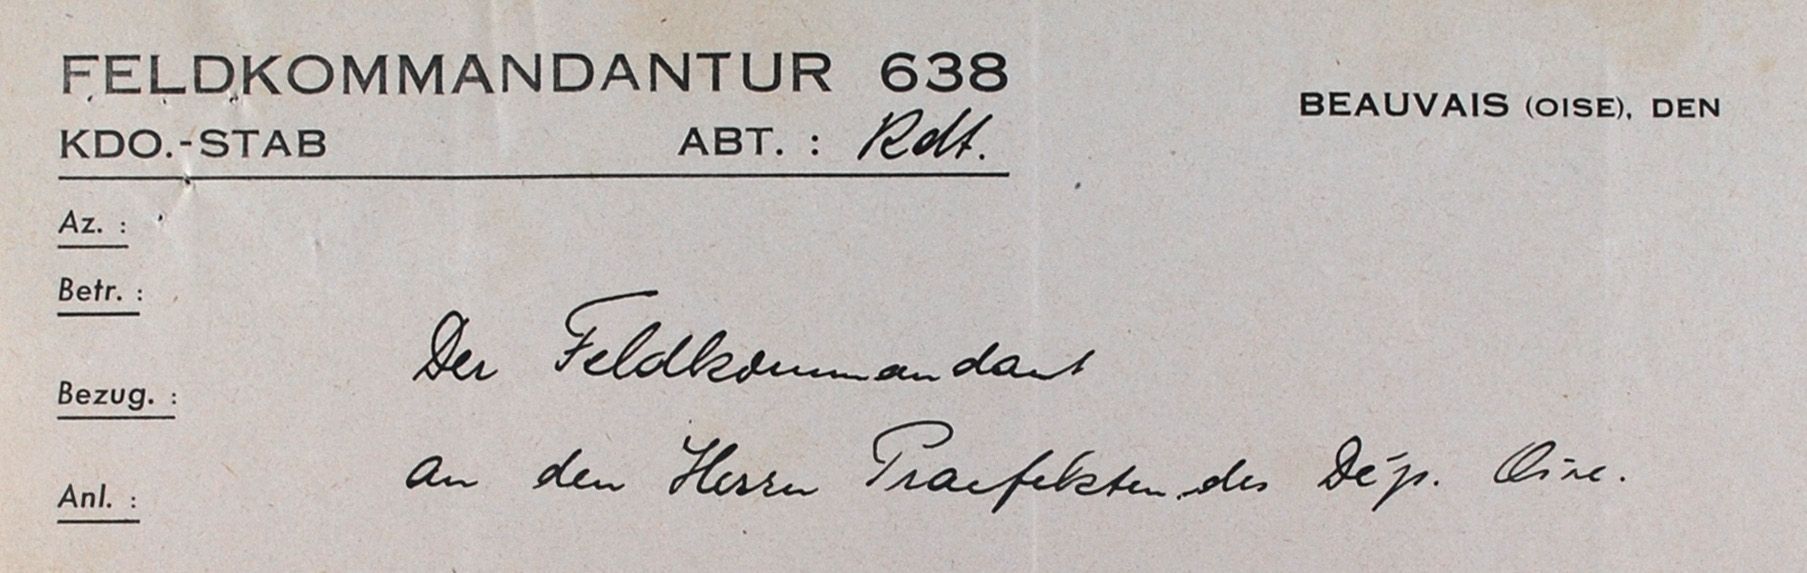 FELDKOMMANDANTUR 638
BEAUVAIS (OISE), DEN
KDO.-STAB ABT. : Rdt.
Az. :
Betr. :
Der Feldkommandant
Bezug. :
an den Herrn Praefekten des Dép. Oise.
Anl. :